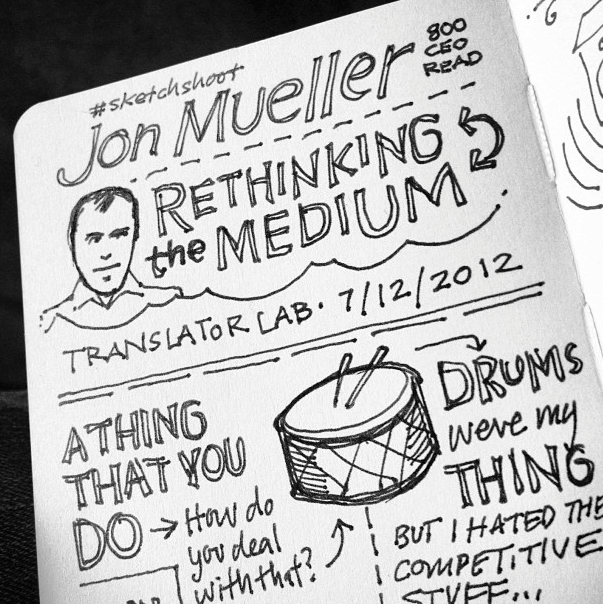 #sketchshoot
Jon Mueller
800
CEO
READ
RETHINKING
the MEDIUM
TRANSLATOR LAB. 7/12/2012
A THING
THAT YOU
DO → How do
you deal
with that?
DRUMS
were my
THING
BUT I HATED THE
COMPETITIVE
STUFF...